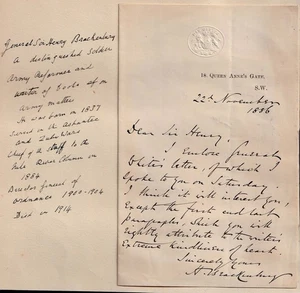 General Sir Henry Brackenbury
A distinguished soldier
Army Reformer and
writer of books on
Army matters
He was born in 1837
Served in the Ashantee
and Zulu Wars
Chief of Staff to the
Nile River Column in
1884
Director General of
Ordnance 1900-1904
Died in 1914
18, Queen Anne's Gate,
S.W.
22nd November
1886
Dear Sir Henry,
I enclose General
White's letter, of which I
spoke to you on Saturday.
I think it will interest you,
except the first and last
paragraphs, which you will
rightly attribute to the writer's
extreme kindliness of heart.
Sincerely yours
H. Brackenbury